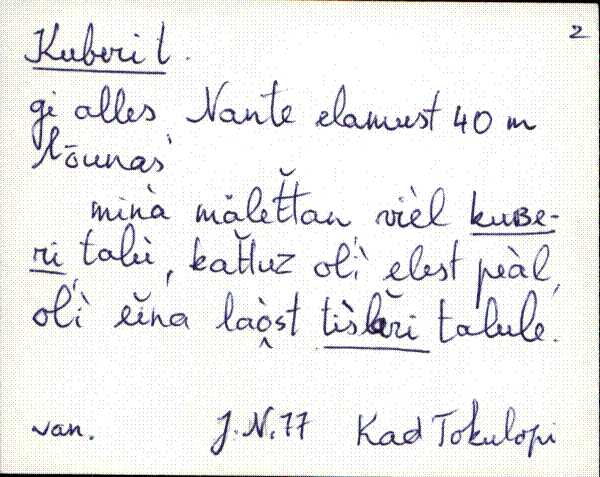 2
Kuberi t.
gi alles Nante elamust 40 m
lõunas
minà mäletťtan vièl kuʙe-
ri talù, kaťtuz olì elest peàl,
olì eĭna laòst tìsleri talule.
van. J.N. 77 Kad Tokulopi